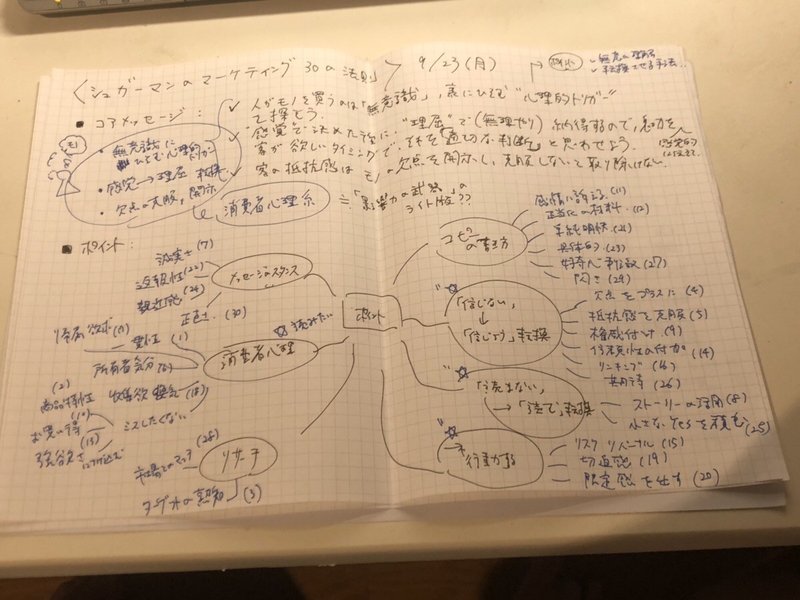 〈シュガーマンのマーケティング 30の法則〉 9/23(月)
・無意識の理解
・転換させる手法
■ コアメッセージ:
✓ 人がモノを買うのは「無意識」、裏にひそむ"心理的トリガー"
で探そう。
✓ "感覚"で決めた後に、"理屈"で(無理やり)納得するので、
客が欲しいタイミングで、それを「適切な判断」と思わせよう。
✓ 客の抵抗感は モノの欠点を開示し、克服しないと取り除けない。
・無意識に
ひそむ心理的トリガー
・感覚→理屈 転換
・欠点の克服、開示
消費者心理系
≒「影響力の武器」の
ライト版??
■ ポイント:
ポイント
メッセージのスタンス
誠実さ (7)
没報性 (22)
親近感 (24)
正直さ (30)
消費者心理
☆読みたい
帰属欲求
一貫性 (1)
所有者気分
収集欲 換気 (18)
ミスしたくない
(2)
商品特性
お買い得
強欲さ (13)
につけ込む
リサーチ
市場とのマッチ
ターゲットの熟知 (3)
コピー
の書き方
感情に訴える (11)
正当化の材料 (12)
単純明快 (21)
具体的 (23)
好奇心刺激 (27)
「信じない」
↓
「信じよう」転換
欠点をプラスに (4)
抵抗感を克服 (5)
権威付け (9)
信頼性の付加 (14)
リンキング
共有 (26)
「読まない」
→「読む」転換
ストーリーの活用 (8)
小さなYesを積む (25)
行動する
リスクリバーサル (15)
切迫感 (19)
限定感を出す (20)